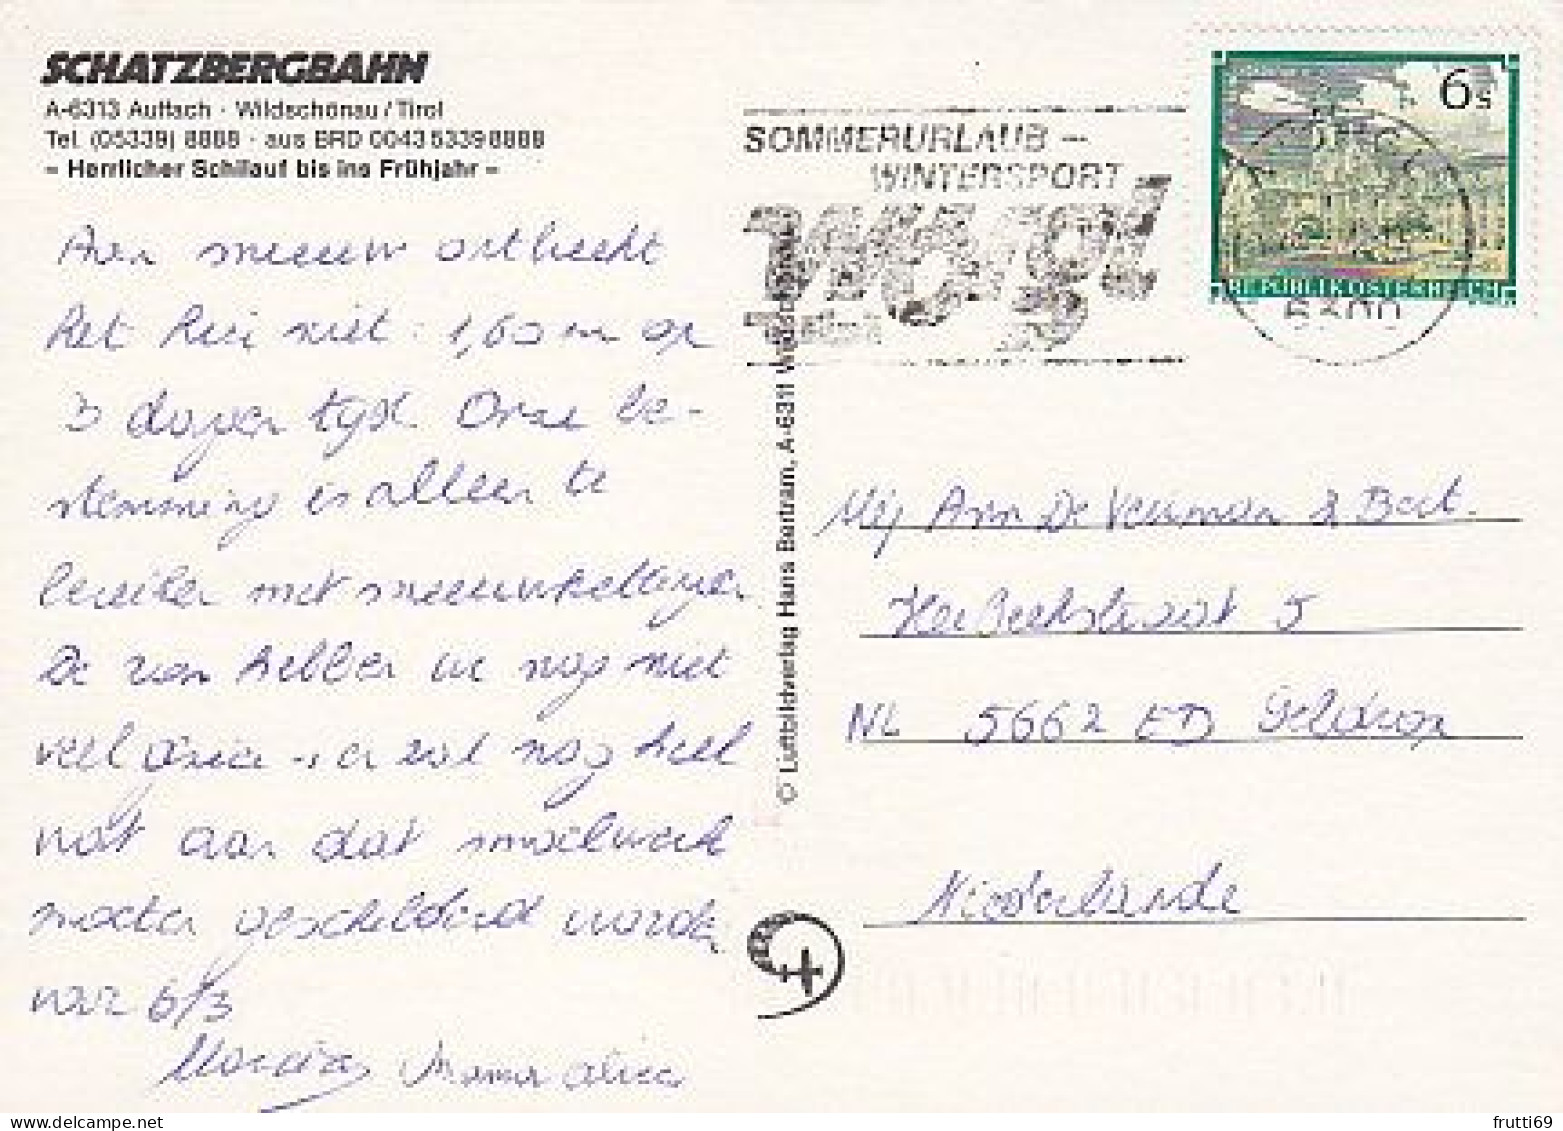 SCHATZBERGBAHN
A-6313 Auffach · Wildschönau/Tirol
Tel. (05339) 8888 · aus BRD 0043 5339 8888
– Herrlicher Schilauf bis ins Frühjahr –
Aan sneeuw ontbreekt
het hier niet: 1,60 m op
3 dagen tijd. Onze be-
stemming is alleen te
bereiken met sneeuwkettingen.
De zon hebben we nog niet
veel gezien - er zal nog heel
wat aan dat smoelwerk
moeten geschilderd worden
voor 6/3
SOMMERURLAUB –
WINTERSPORT
Wörgl
Tirol
6s
REPUBLIK ÖSTERREICH
6300
© Luftbildverlag Hans Bertram, A-6311 Wildschönau
Mej Ann De Veuman & Bert.
5
NL 5662 ED Geldrop
Niederlände
frutti69